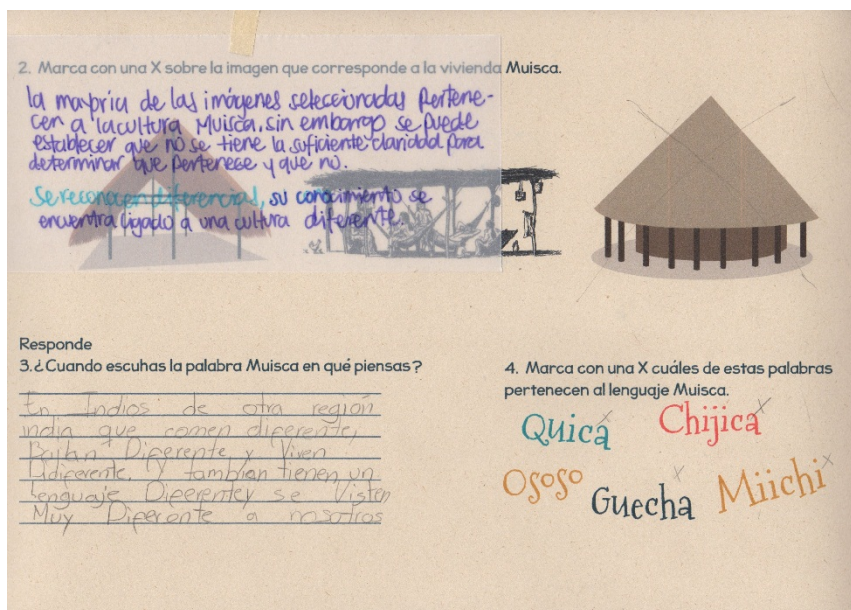 2. Marca con una X sobre la imagen que corresponde a la vivienda Muisca.
la mayoria de las imágenes seleccionadas pertene-
cen a la cultura Muisca, sin embargo se puede
establecer que no se tiene la suficiente claridad para
determinar que pertenece y que no.
Se reconocen diferencias, su conocimiento se
encuentra ligado a una cultura diferente.
Responde
3.¿Cuando escuhas la palabra Muisca en qué piensas?
En Indios de otra región
india que comen diferente,
Bailan Diferente y Viven
diferente. Y tambien tienen un
lenguaje Diferente y se Visten
Muy Diferente a nosotros
4. Marca con una X cuáles de estas palabras
pertenecen al lenguaje Muisca.
Quica Chijica
Ososo Guecha Miichi